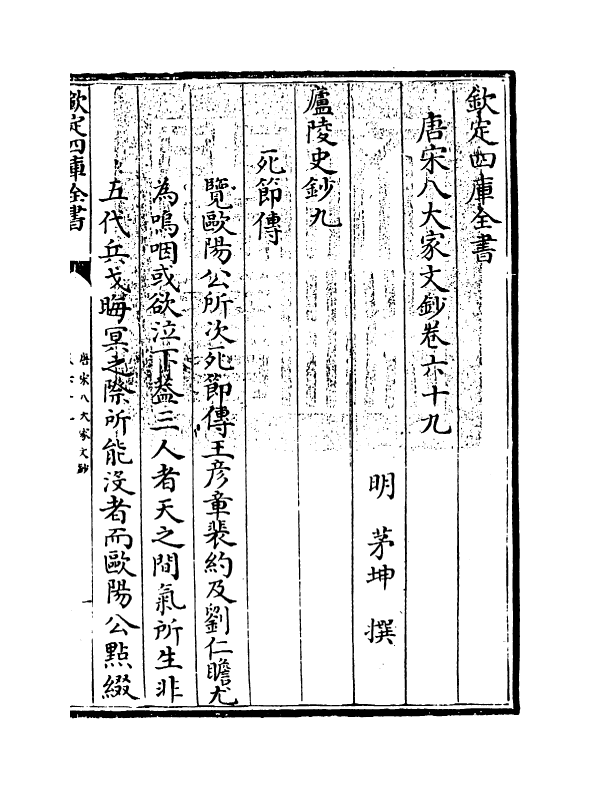 欽定四庫全書
唐宋八大家文鈔卷六十九
明 茅坤 撰
廬陵史鈔九
死節傳
覽歐陽公所次死節傳王彦章裴約及劉仁瞻尤
為嗚咽或欲泣下葢三人者天之間氣所生非
五代兵戈晦冥之際所能沒者而歐陽公㸃綴
欽定四庫全書
唐宋八大家文鈔
一